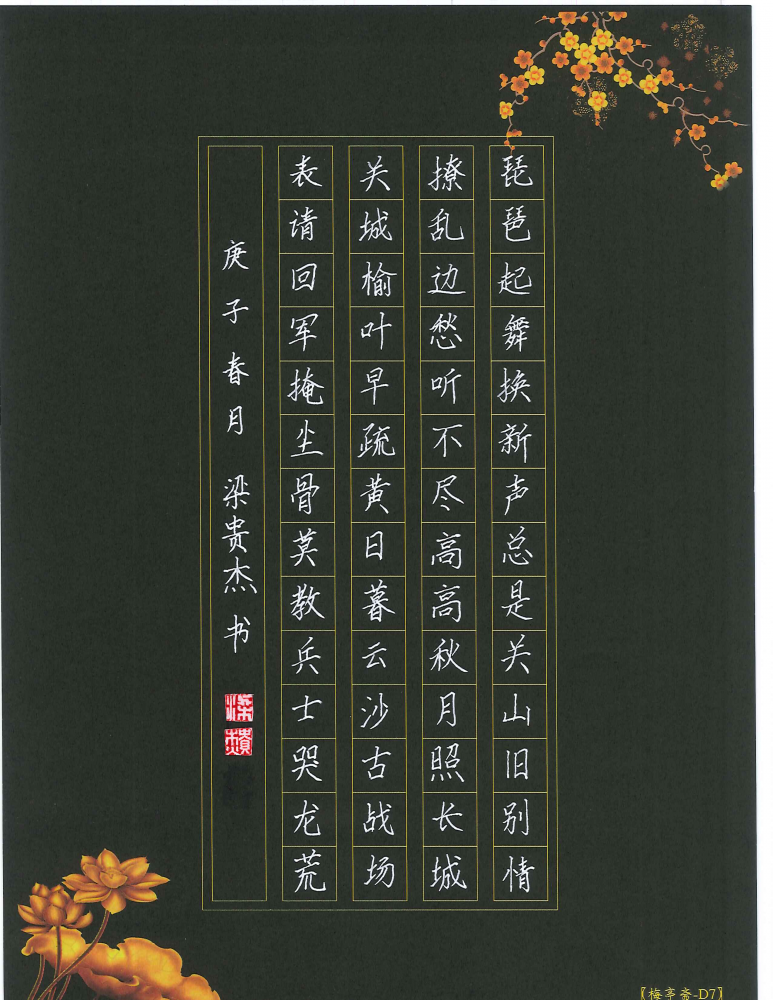 琵琶起舞换新声总是关山旧别情
撩乱边愁听不尽高高秋月照长城
关城榆叶早疏黄日暮云沙古战场
表请回军掩尘骨莫教兵士哭龙荒
庚子春月 梁贵杰书
【梅亭斋-D7】